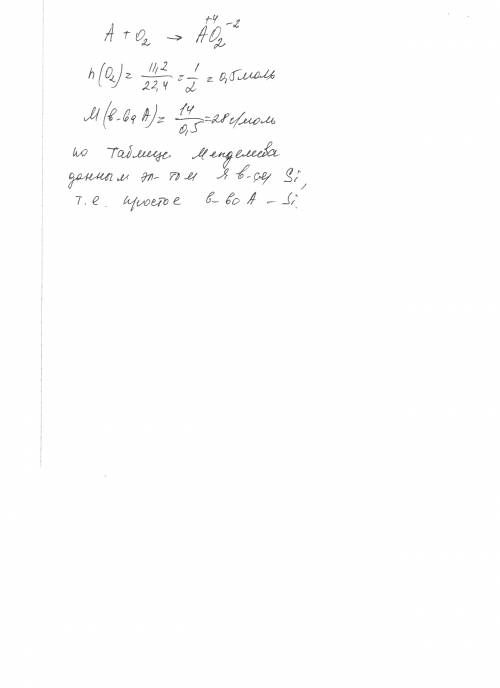 A + O₂ → A⁺⁴O₂⁻²
n(O₂) = 11,2/22,4 = 1/2 = 0,5 моль
M(в-ва A) = 14/0,5 = 28 г/моль
по таблице Менделеева
данным эл-том яв-ся Si,
т.е. простое в-во A – Si.